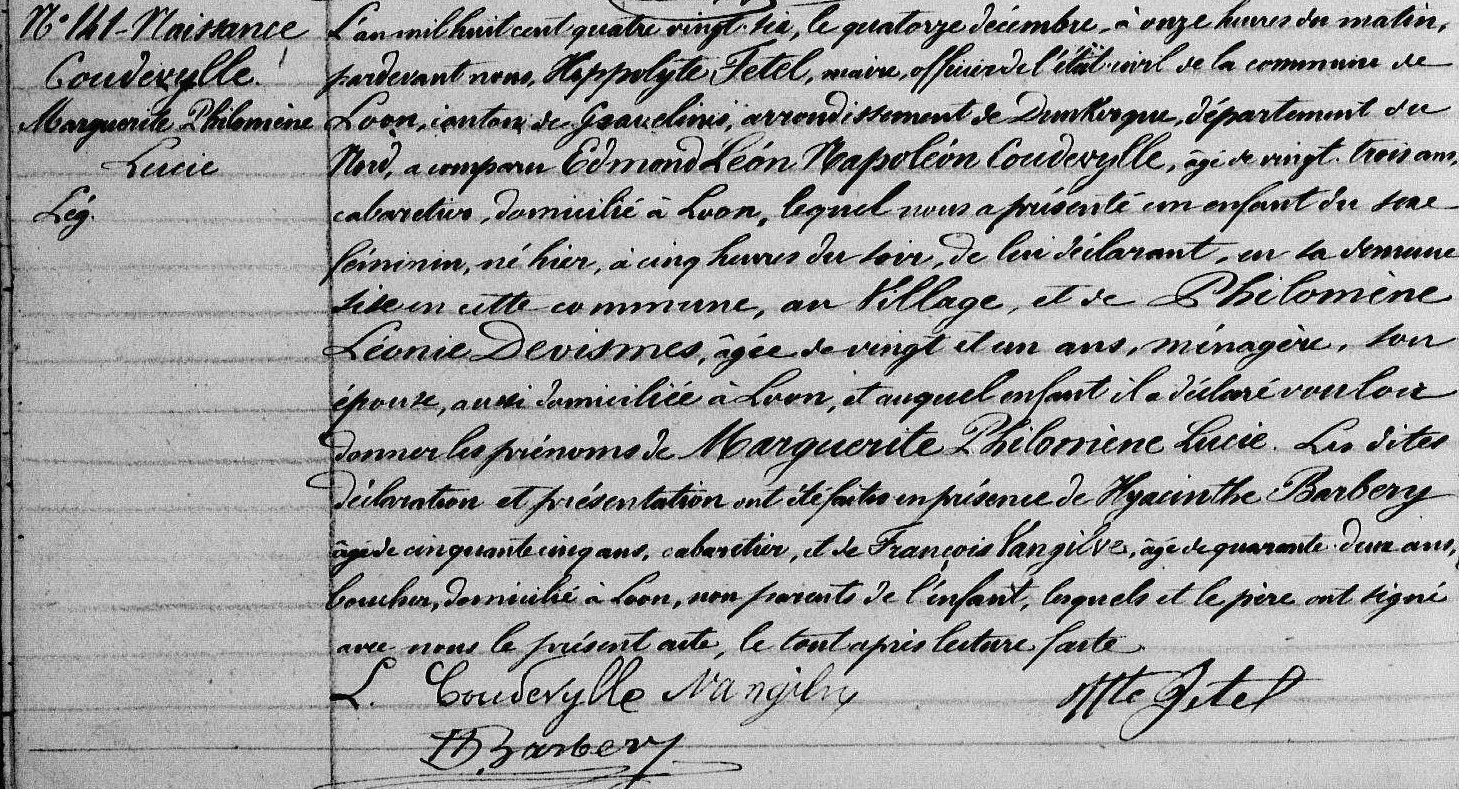 N° 141 - Naissance
Coudevylle
Marguerite Philomène
Lucie
Lég.
L'an mil huit cent quatre vingt-six, le quatorze décembre, à onze heures du matin,
pardevant nous, Hippolyte Fetel, maire, officier de l'état civil de la commune de
Loon, canton de Gravelines, arrondissement de Dunkerque, département du
Nord, a comparu Edmond Léon Napoléon Coudevylle, âgé de vingt-trois ans,
cabaretier, domicilié à Loon, lequel nous a présenté un enfant du sexe
féminin, né hier, à cinq heures du soir, de lui déclarant, en sa demeure
sise en cette commune, au Village, et de Philomène
Léonie Devismes, âgée de vingt et un ans, ménagère, son
épouse, aussi domiciliée à Loon, et auquel enfant il a déclaré vouloir
donner les prénoms de Marguerite Philomène Lucie. Les dites
déclaration et présentation ont été faites en présence de Hyacinthe Barbery
âgé de cinquante cinq ans, cabaretier, et de François Vangilve, âgé de quarante-deux ans,
boucher, domicilié à Loon, non parents de l'enfant, lesquels et le père ont signé
avec nous le présent acte, le tout après lecture faite.
L. Coudevylle Vangilve Hte Fetel
H Barbery